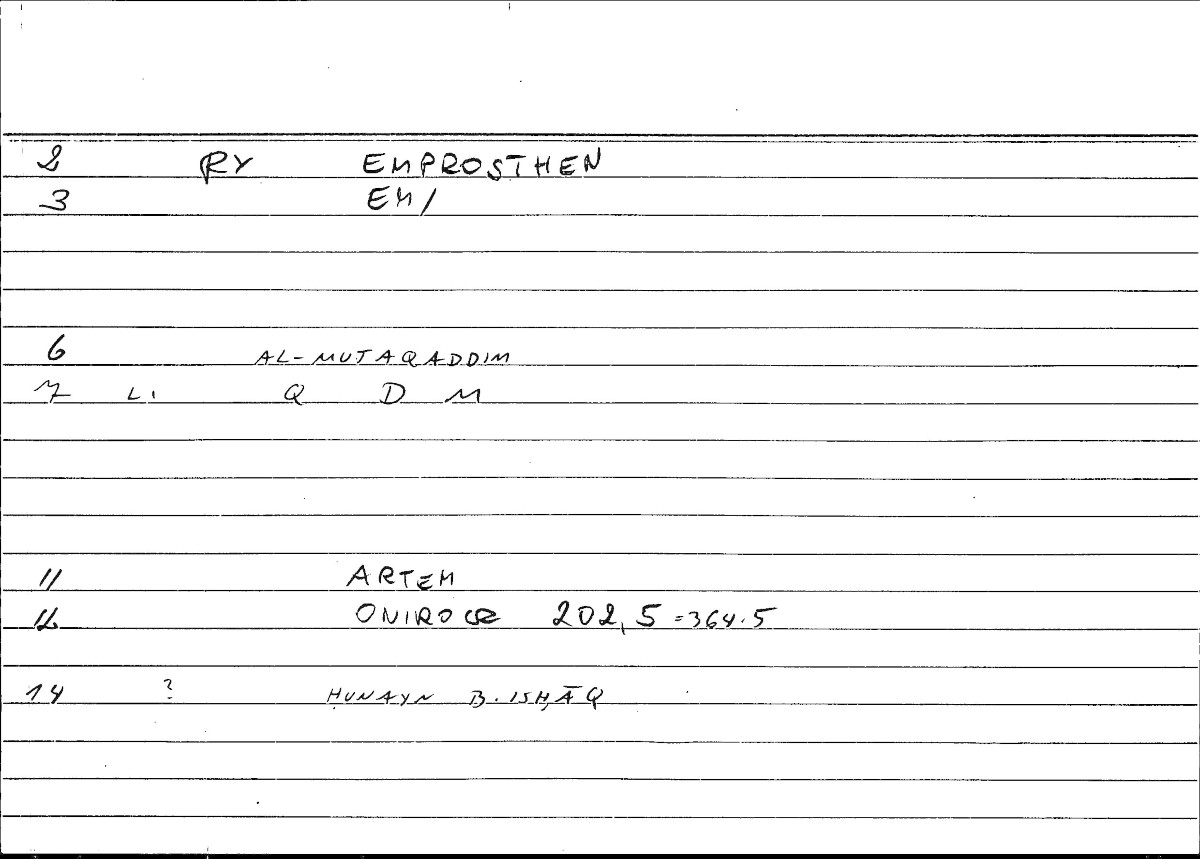 2 RY EMPROSTHEN
3 EM/
6 AL-MUTAQADDIM
7 LI Q D M
11 ARTEM
12 ONIROCR 202,5 =364.5
14 ? ḤUNAYN B. ISḤĀQ